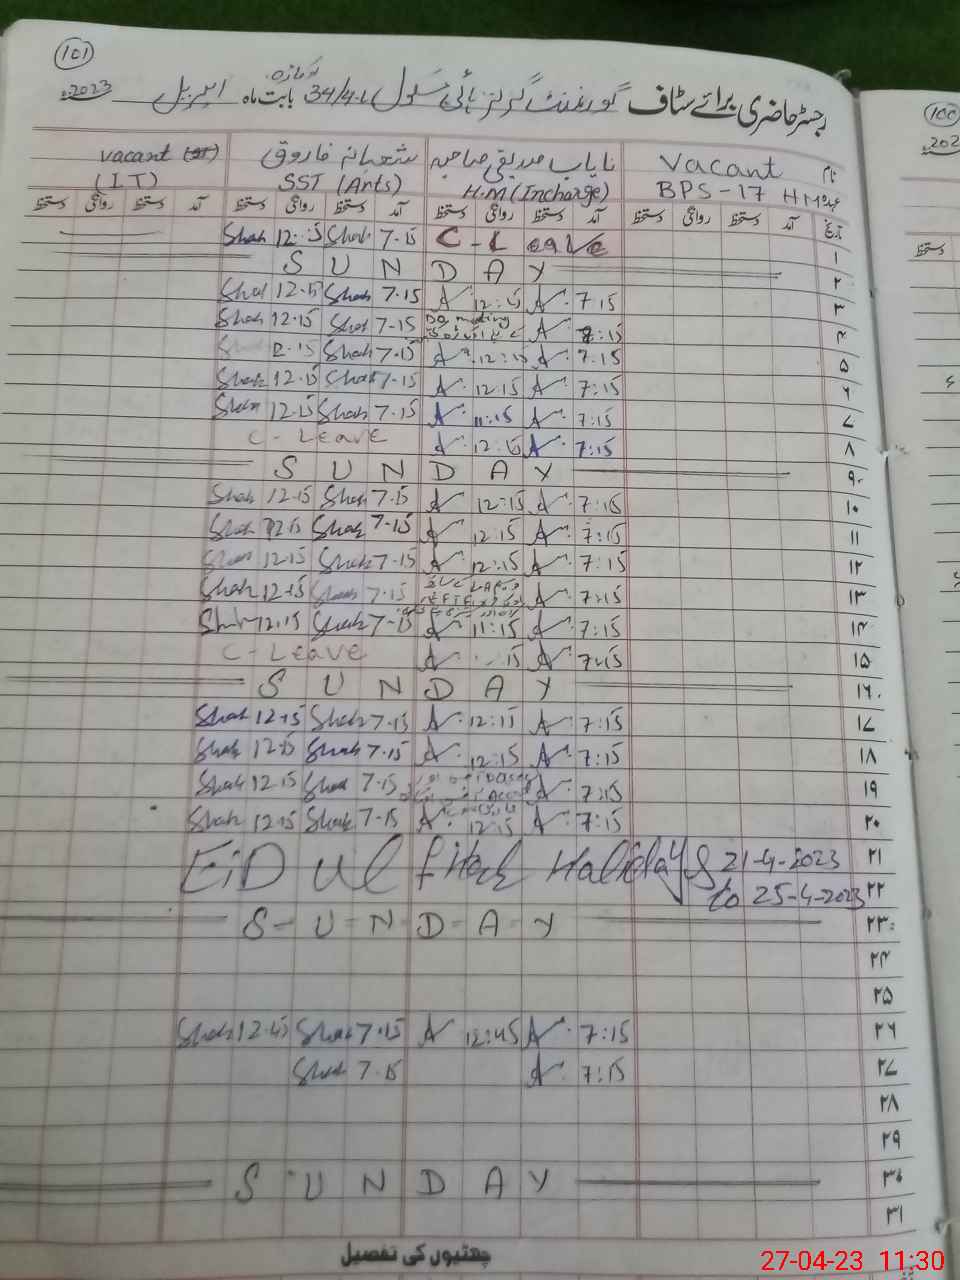 101
رجسٹر حاضری برائے سٹاف گورنمنٹ گرلز ہائی سکول 34/4-L بابت ماہ اپریل 2023ء
نام Vacant نایاب صدیقی صاحبہ شعبانہ فاروق vacant
عہدہ HM BPS-17 H.M (Incharge) SST (Arts) (I.T)
تاریخ آمد دستخط روانگی دستخط آمد دستخط روانگی دستخط آمد دستخط روانگی دستخط آمد دستخط روانگی دستخط
۱ C-Leave 7-15 Shah 12-15 Shah
۲ SUNDAY
۳ 7:15 12:15 7-15 Shah 12-15 Shah
۴ 8:15 DO meeting 7-15 Shah 12-15 Shah
۵ 7:15 12:15 7-15 Shah 12-15
۶ 7:15 12:15 7-15 Shah 12-15 Shah
۷ 7:15 11:15 7-15 Shah 12-15 Shah
۸ 7:15 12:15 C-Leave
۹ SUNDAY
۱۰ 7:15 12:15 7-15 Shah 12-15 Shah
۱۱ 7:15 12:15 7-15 Shah 12-15 Shah
۱۲ 7:15 12:15 7-15 Shah 12-15 Shah
۱۳ 7:15 7-15 Shah 12-15 Shah
۱۴ 7:15 11:15 7-15 Shah 12-15 Shah
۱۵ 7:15 C-Leave
۱۶ SUNDAY
۱۷ 7:15 12:15 7-15 Shah 12-15 Shah
۱۸ 7:15 12:15 7-15 Shah 12-15 Shah
۱۹ 7:15 7-15 Shah 12-15 Shah
۲۰ 7:15 12:15 7-15 Shah 12-15 Shah
۲۱ EiD ul fitar Holidays 21-4-2023
۲۲ to 25-4-2023
۲۳ S-U-N-D-A-Y
۲۴
۲۵
۲۶ 7:15 12:45 7-15 Shah 12-45 Shah
۲۷ 7:15 7-15 Shah
۲۸
۲۹
۳۰ SUNDAY
۳۱
چھٹیوں کی تفصیل
100
202
دستخط
27-04-23 11:30